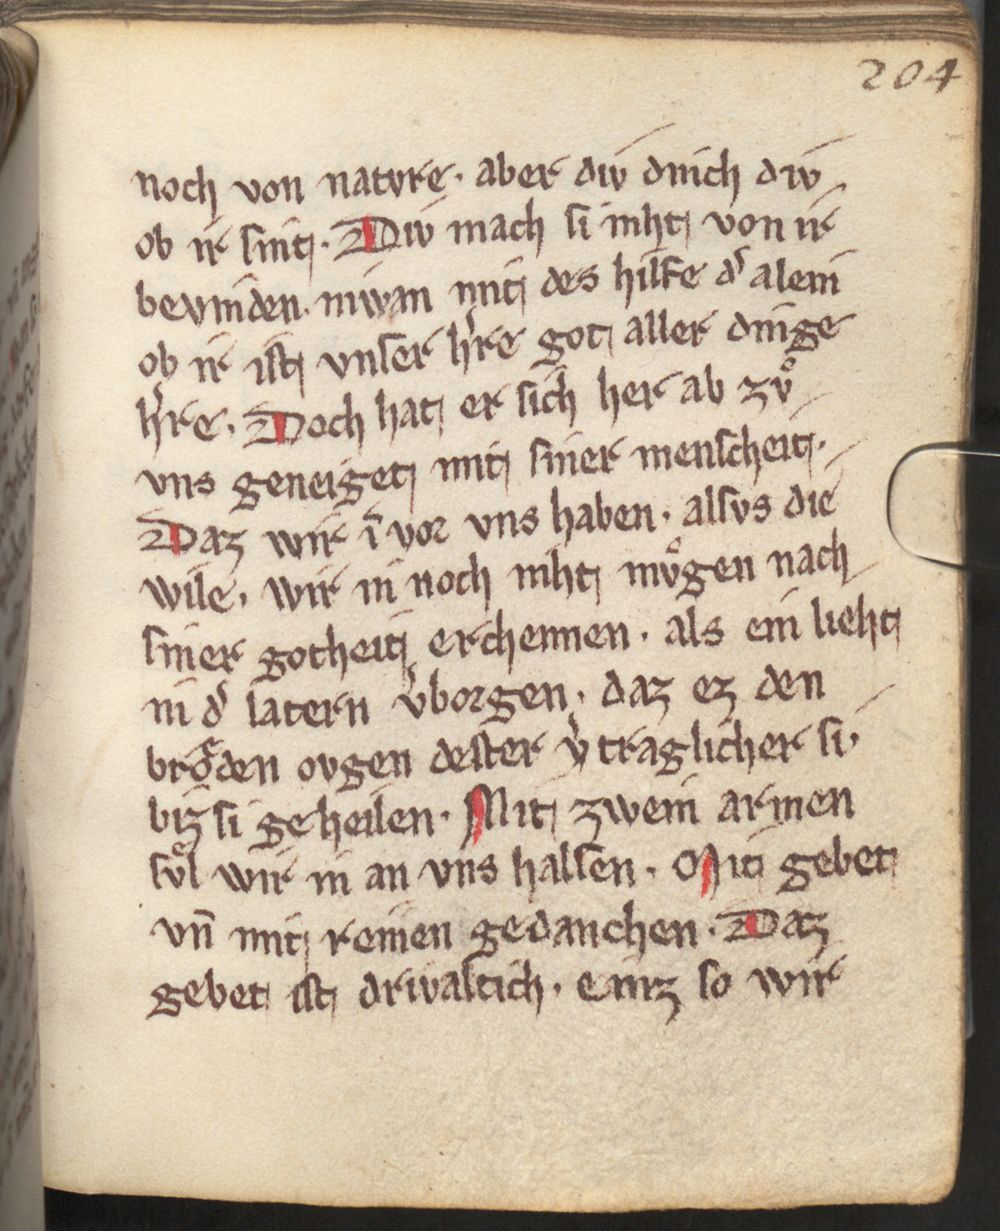 204
noch von natvre. aber div dinch div
ob ir sint. Div mach si niht von ir
bevinden. niwan mit des hilfe dˢ alein
ob ir ist vnser hˢre got aller dinge
hˢre. Doch hat er sich her ab zvͦ
vns geneiget mit siner menscheit.
Daz wir ī vor vns haben. alsvs die
wile. wir in noch niht mvͦgen nach
siner gotheit erchennen. als ein lieht
in dˢ latern vˢborgen. daz ez den
broͤden ovgen dester vˢtraglicher si.
biz si geheilen. Mit zwein armen
svͦl wir in an vns halsen. Mit gebet
vn̄ mit reinen gedanchen. Daz
gebet ist drivaltich. einz so wir